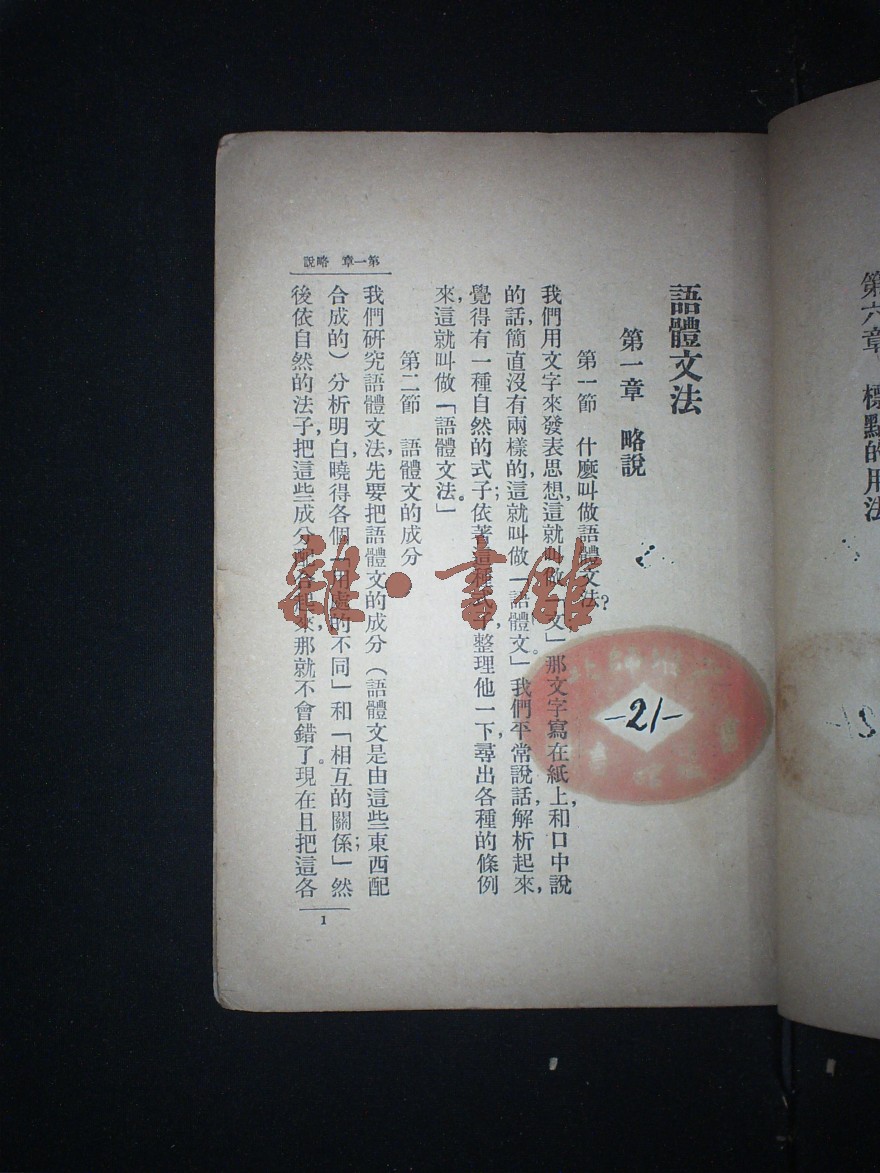 第六章　標點的用法
語體文法
第一章　略說
第一節　什麼叫做語體文法?
我們用文字來發表思想,這就叫做「文」。那文字寫在紙上,和口中說
的話,簡直沒有兩樣的,這就叫做「語體文」。我們平常說話,解析起來,
覺得有一種自然的式子;依著這種式子,整理他一下,尋出各種的條例
來,這就叫做「語體文法。」
第二節　語體文的成分
我們研究語體文法,先要把語體文的成分(語體文是由這些東西配
合成的)分析明白,曉得各個「用處的不同」和「相互的關係」;然
後依自然的法子,把這些成分配合起來,那就不會錯了。現在且把這各
第一章　略說
1
-21-
雜·書館